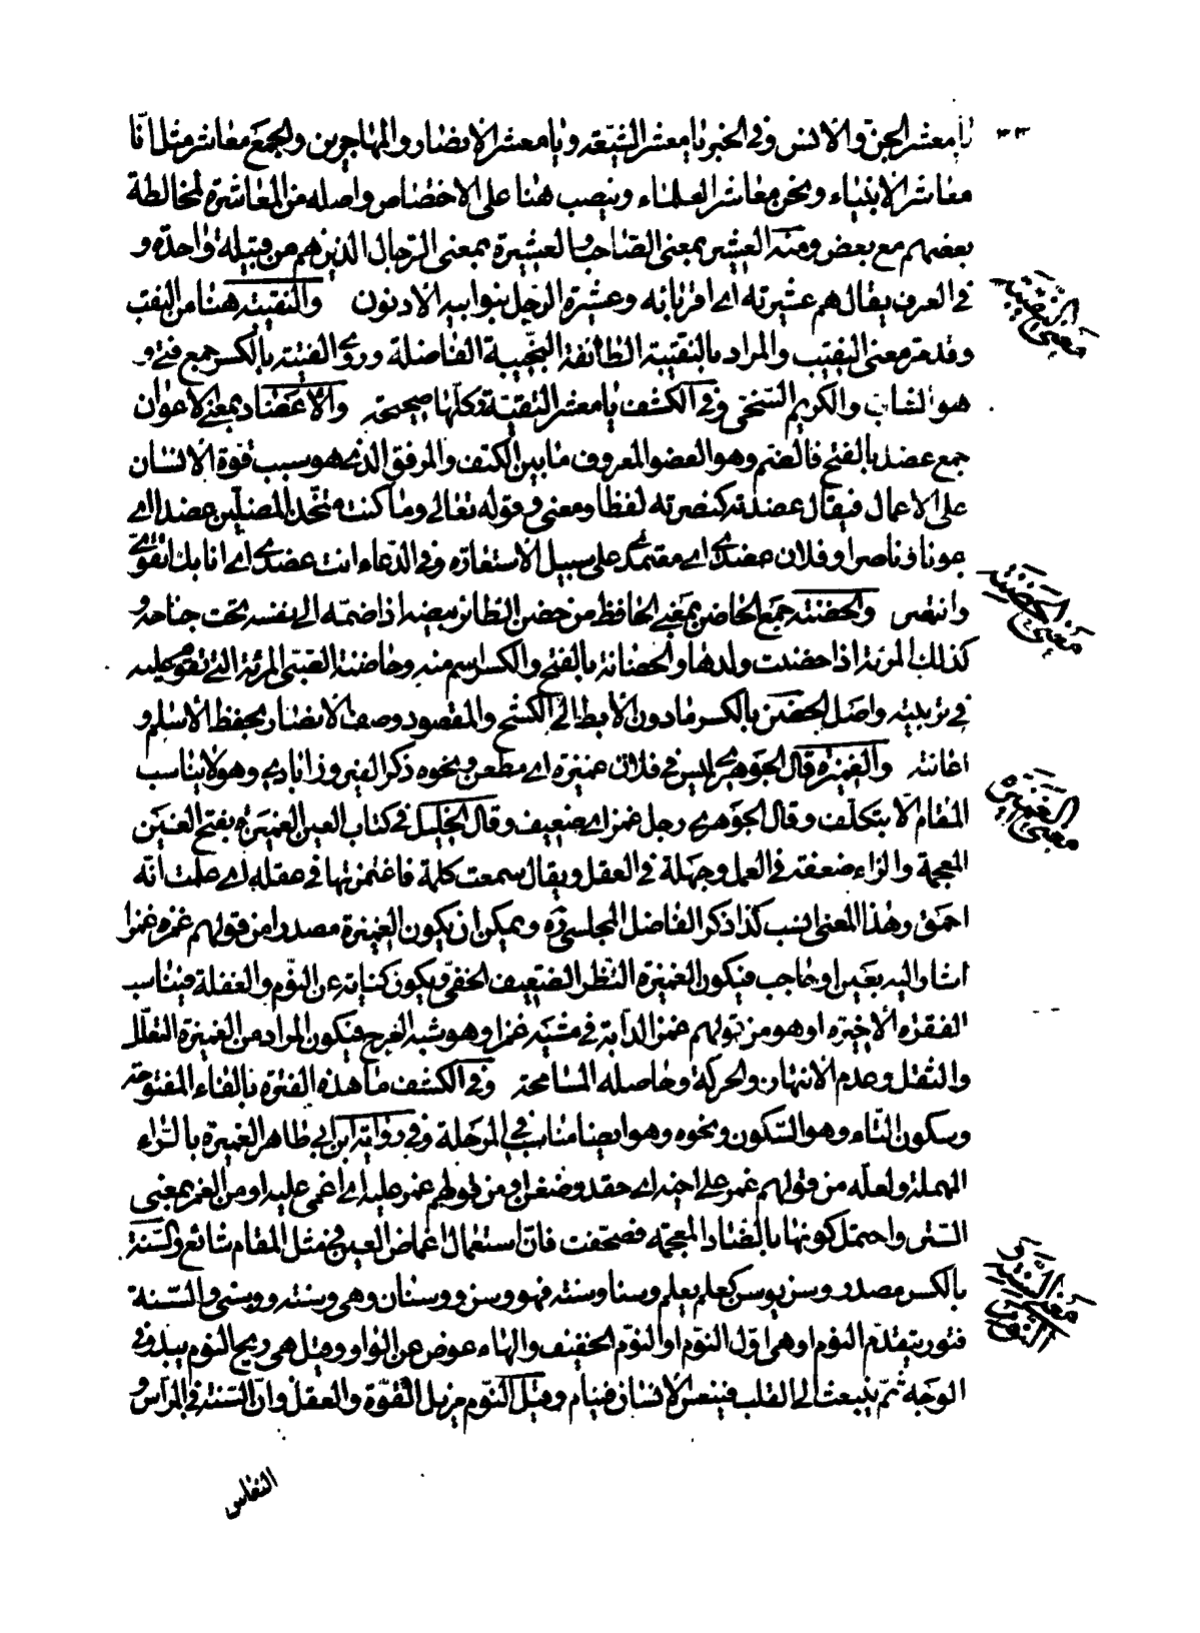 يا معشر الجن والانس وفى الخبر يا معشر الشيعه ويا معشر الانصار والمهاجرين والجمع معاشر مثل انا
معاشر الانبياء ونحن معاشر العلماء وينصب هنا على الاختصاص واصله من المعاشرة لمخالطة
بعضهم مع بعض ومنه العشير بمعنى الصاحب والعشيرة بمعنى الرجال الذين هم من قبيلة واحدة و
فى العرف يقال هم عشيرته اى اقربائه وعشيرة الرجل بنوا بيه الادنون والنقيبه هنا من النقب
وقد مر معنى النقيب والمراد بالنقيبة الطائفة النجيبة الفاضلة وروى الفتية بالكسر جمع فتى و
هو الشاب والكريم السخى وفى الكشف يا معشر النقيبة وكلها صحيحة والاعضاد بمعنى الاعوان
جمع عضد بالفتح فالضم وهو العضو المعروف ما بين الكتف والمرفق الذى هو سبب قوة الانسان
على الاعمال فيقال عضدته كنصرته لفظا ومعنى وفى قوله تعالى وما كنت متخذ المضلين عضدا اى
عونا وناصرا وفلان عضدى اى معتمدى على سبيل الاستعارة وفى الدعاء انت عضدى اى انا بك اتقوى
وانتصر والحضنة جمع الحاضن بمعنى الحافظ من حضن الطائر بيضه اذا ضمه الى نفسه تحت جناحه و
كذلك المرئة اذا حضنت ولدها والحضانة بالفتح والكسر اسم منه وحاضنة الصبى المرئة التى تقوم عليه
فى تربيته واصل الحضن بالكسر ما دون الابط الى الكشح والمقصود وصف الانصار بحفظ الاسلام و
اعانته والغميزة قال الجوهرى ليس فى فلان غميزة اى مطعن ونحوه ذكر الفيروزابادى وهو لا يناسب
المقام الا بتكلف وقال الجوهرى رجل غمز اى ضعيف وقال الخليل فى كتاب العين الغميزة بفتح الغين
المعجمة والزاء ضعفة فى العمل وجهلة فى العقل ويقال سمعت كلمة فاغتمزتها فى عقله اى علمت انه
احمق وهذا المعنى انسب كذا ذكر الفاضل المجلسى ره ويمكن ان يكون الغميزة مصدرا من قولهم غمزه غمزا
اشار اليه بعين او حاجب فيكون الغميزة النظر الضعيف الخفى ويكون كناية عن النوم والغفلة فيناسب
الفقره الاخيره او هو من قولهم غمز الدابة فى مشيه غمزا وهو شبه العرج فيكون المراد من الغميزة التعلل
والتثقل وعدم الانتهاز والحركة وحاصله المسامحة وفى الكشف ما هذه الفترة بالفاء المفتوحة
وسكون التاء وهو السكون ونحوه وهو ايضا مناسب فى المرحلة وفى رواية ابن ابى طاهر الغميرة بالراء
المهملة ولعله من قولهم غمر على اخيه اى حقد وضغن او من قولهم غمر عليه اى اغمى عليه او من الغمر بمعنى
الستر واحتمل كونها بالضاد المعجمة فصحفت فان استعمال اغماض العين فى مثل المقام شائع والسنة
بالكسر مصدر وسن يوسن كعلم يعلم وسنا وسنة فهو وسن ووسنان وهى وسنة ووسنى والسنة
فتور يتقدم النوم او هى اول النوم او النوم الخفيف والهاء عوض عن الواو وقيل هى ريح النوم يبدو فى
الوجه ثم ينبعث الى القلب فينعس الانسان فينام وقيل النوم مزيل القوة والعقل وان السنة فى الرأس و
النعاس
معنى النقيبة
معنى الحضنة
معنى الغميزة
معنى السنة و النوم